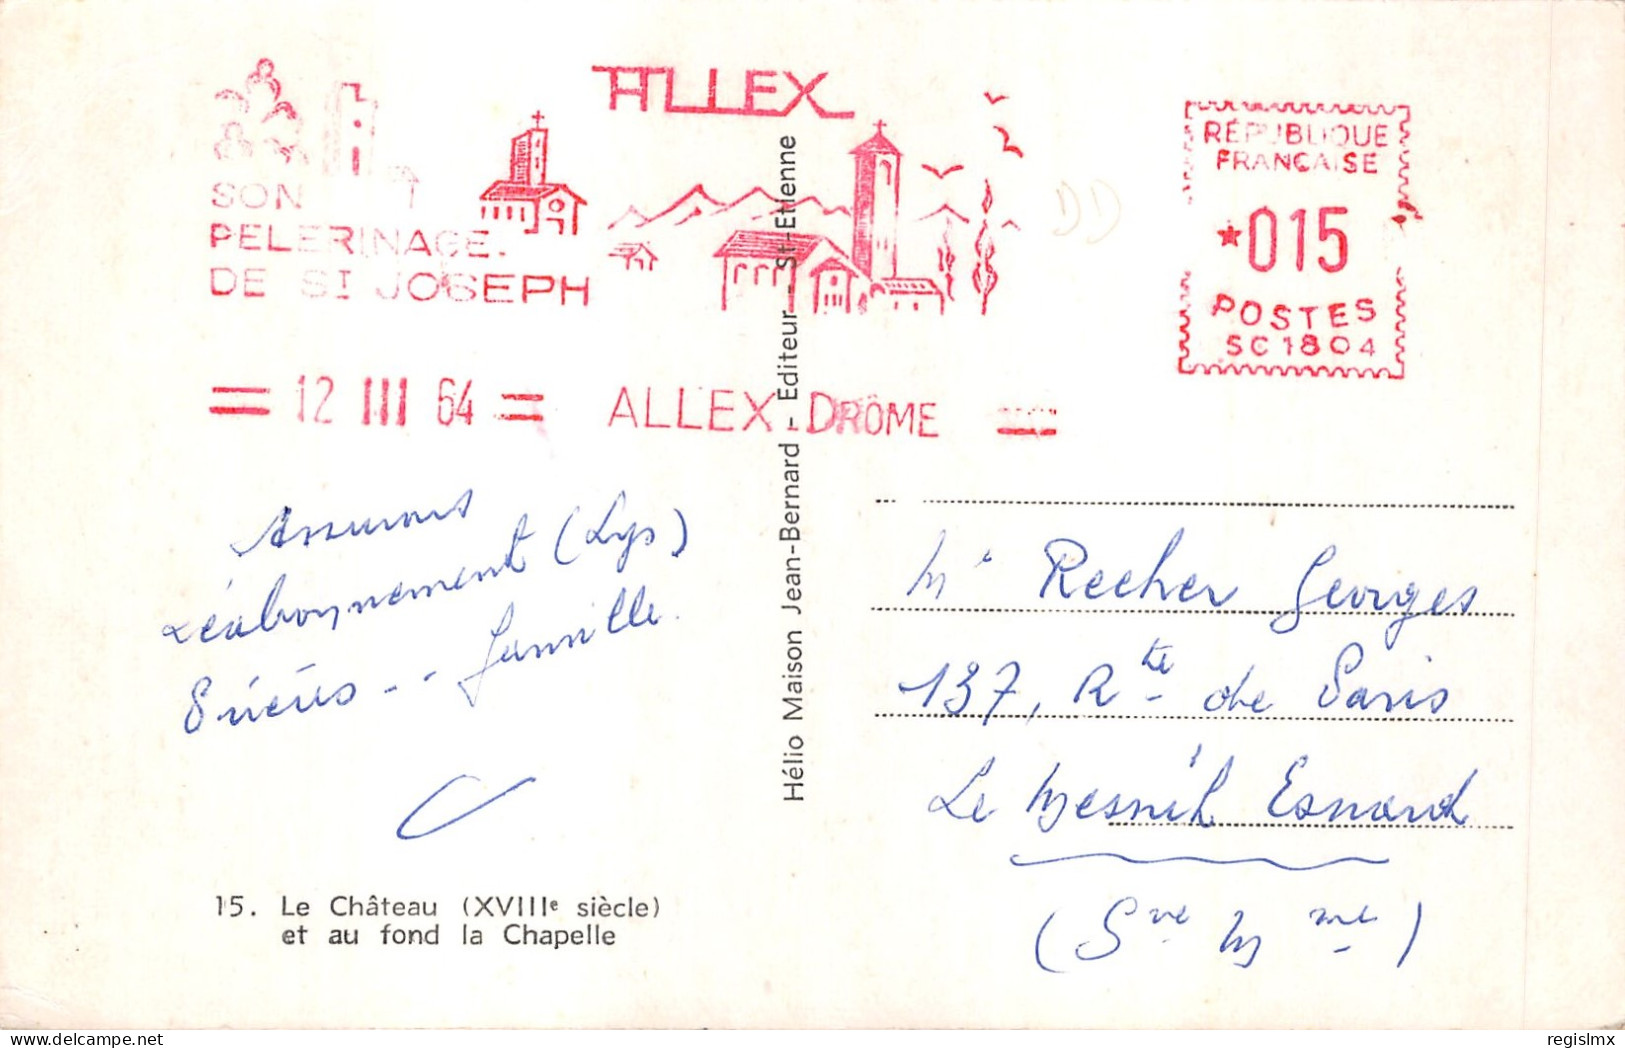 ALLEX
SON
PELERINAGE
DE ST JOSEPH
RÉPUBLIQUE
FRANCAISE
*015
POSTES
SC1804
= 12 III 64 = ALLEX - DRÔME
Hélio Maison Jean-Bernard - Editeur - St-Etienne
DD
Assurons
réabonnement (Lys)
Prières -- famille.
Mr Recher Georges
137, Rte de Paris
Le Mesnil Esnard
(Sne Mme)
15. Le Château (XVIIIe siècle)
et au fond la Chapelle
regislmx